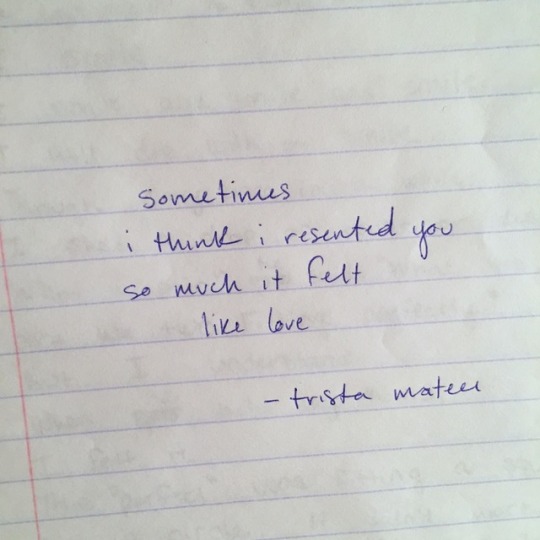 sometimes
i think i resented you
so much it felt
like love
- trista mateer